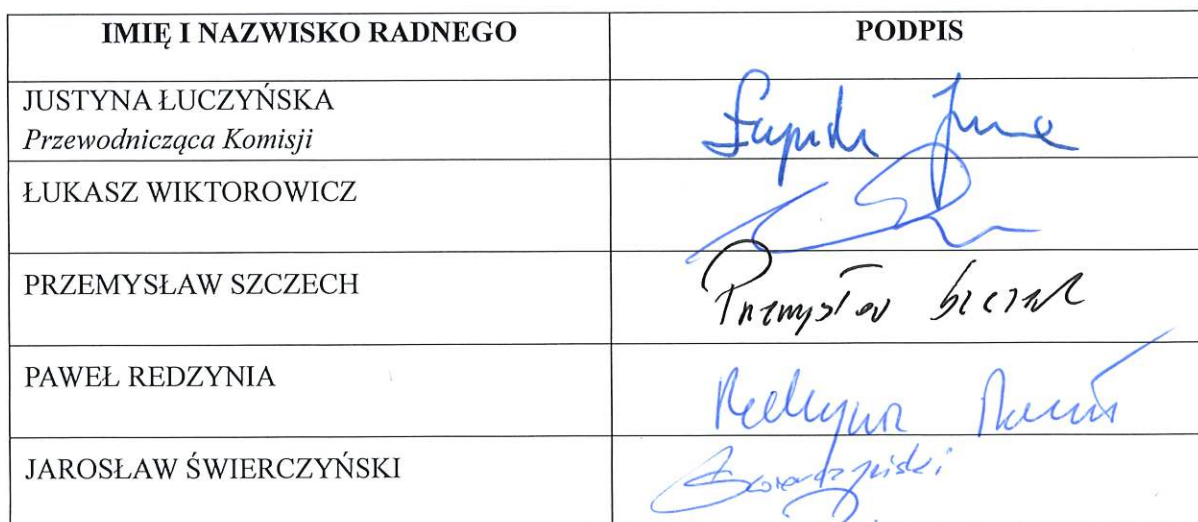 IMIĘ I NAZWISKO RADNEGO
PODPIS
JUSTYNA ŁUCZYŃSKA
Przewodnicząca Komisji
ŁUKASZ WIKTOROWICZ
PRZEMYSŁAW SZCZECH
Przemysław Szczech
PAWEŁ REDZYNIA
Redzynia Paweł
JAROSŁAW ŚWIERCZYŃSKI